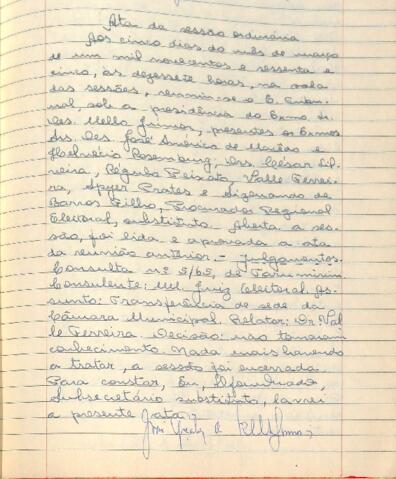 Ata da sessão ordinária
Aos cinco dias do mês de março
de um mil novecentos e sessenta e
cinco, às dezessete horas, na sala
das sessões, reuniu-se o E. Tribu-
nal, sob a presidência do Exmo. Sr.
Des. Mello Júnior, presentes os Exmos.
Srs. Des. José Américo de Macêdo e
Helvécio Rosenburg; Drs. César Sil-
veira, Régulo Peixoto, Valle Ferrei-
ra, Prates e Sizenando de
Barros Filho, Procurador Regional
Eleitoral, substituto. Aberta a ses-
são, foi lida e aprovada a ata
da reunião anterior. - Julgamentos.
Consulta nº 5/65, de Tarumirim
Consulente: MM. Juiz Eleitoral. As-
sunto: Transferência de sede da
Câmara Municipal. Relator: Dr. Val-
le Ferreira. Decisão: não tomaram
conhecimento. Nada mais havendo
a tratar, a sessão foi encerrada.
Para constar, Eu,
Subsecretário substituto, lavrei
a presente ata.